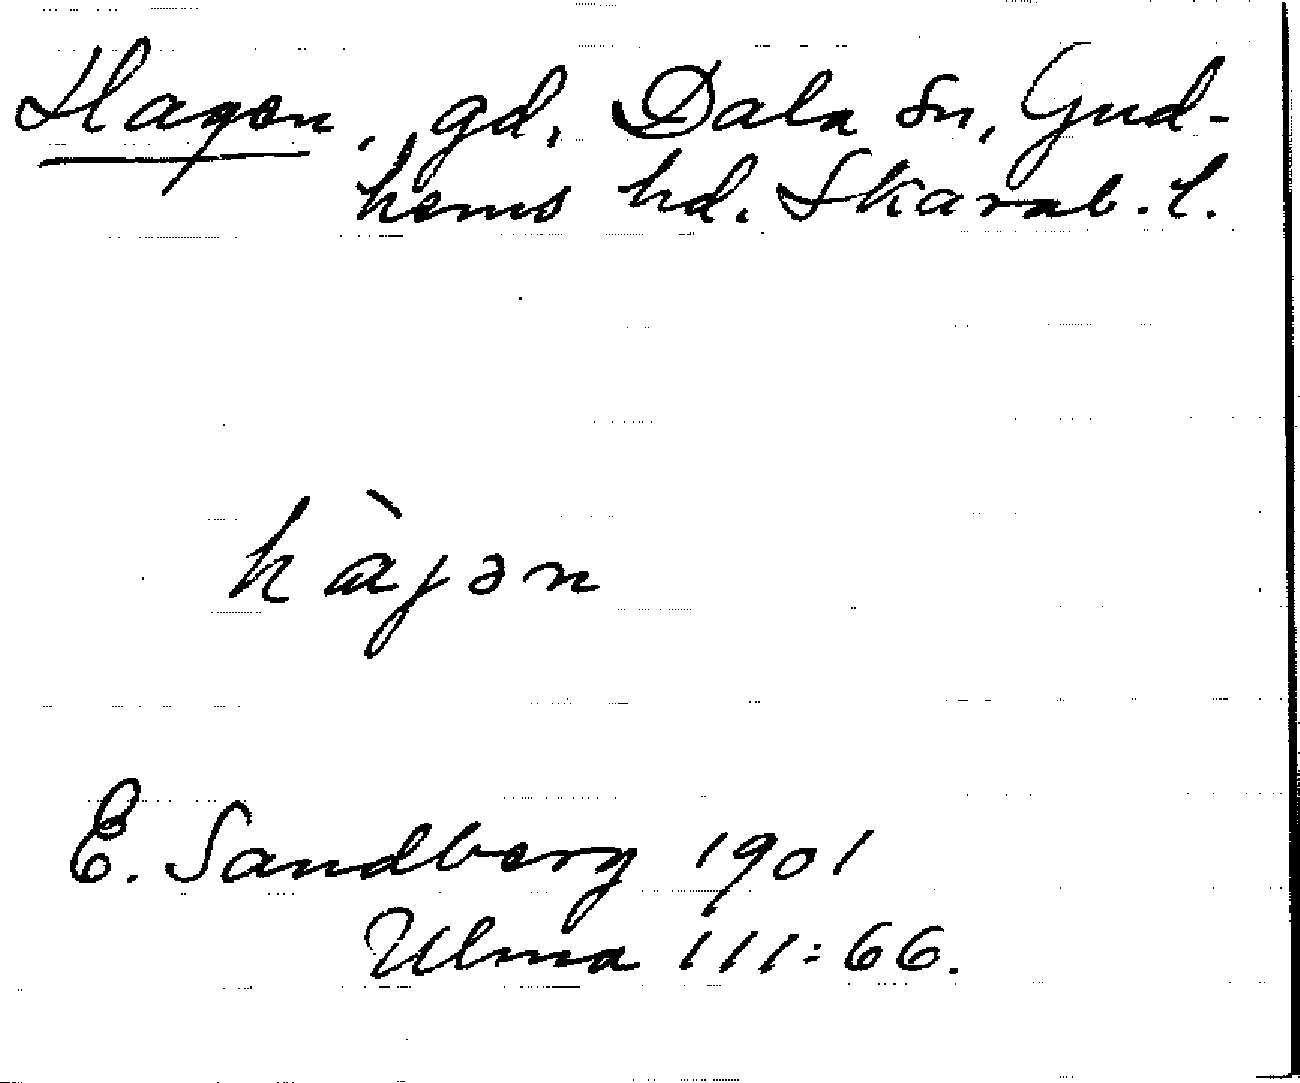 Hagen, gd, Dala sn, Gud-
hems hd. Skarab. l.
hàgən
E. Sandberg 1901
Ulma 111:66.